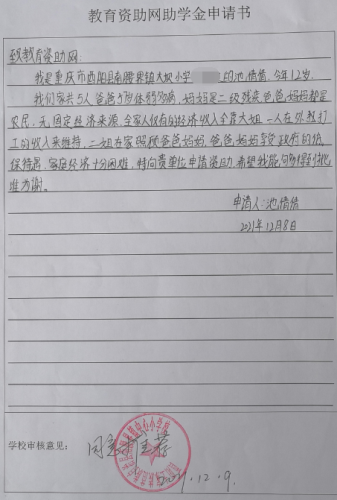 教育资助网助学金申请书
致教育资助网:
我是重庆市酉阳县南腰界镇大坝小学 的池倩倩,今年12岁。
我们家共5人,爸爸 岁体弱多病,妈妈是二级残疾,爸爸妈妈都是
农民,无固定经济来源,全家人仅有的经济收入全靠大姐一人在外款打
工的收入来维持,二姐在家照顾爸爸妈妈,爸爸,妈妈享受政府的低
保待遇,家庭经济十分困难,特向贵单位申请资助,希望我能 得到批
准为谢。
申请人:池倩倩
2021年12月8日
学校审核意见:
同意推荐
2021.12.9.
中心小学校